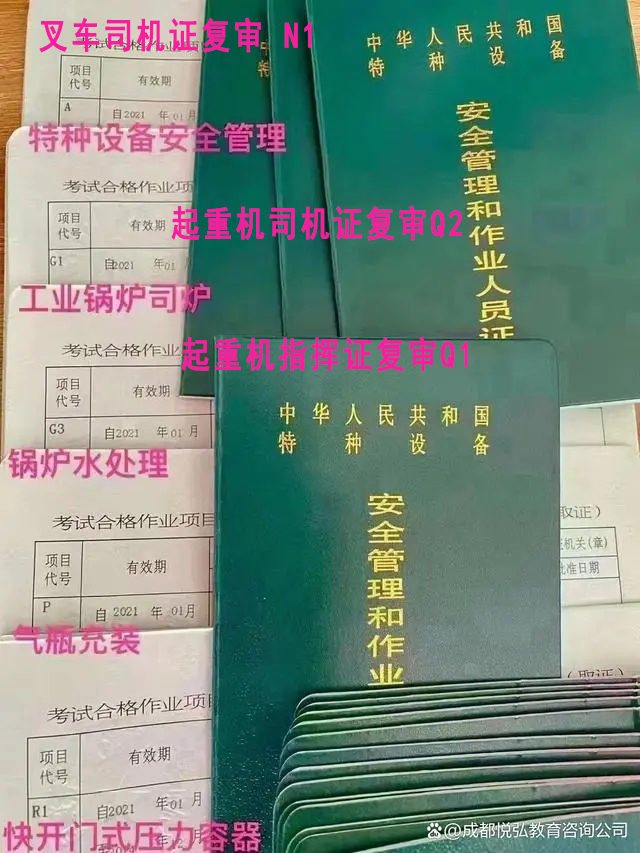 叉车司机证复审 N1
考试合格作业项
项目
代号
有效期
A
自2021 年01月
特种设备安全管理
考试合格作业项
项目
代号
有效期
G1
自2021 年01
起重机司机证复审Q2
工业锅炉司炉
考试合格作业
项目
代号
有效期
G3
自2021 年01月
起重机指挥证复审Q1
锅炉水处理
考试合格作业项目
项目
代号
有效期
P
自2021 年01月
气瓶充装
考试合格作业项
项目
代号
有效期
R1
自2021 年01月
快开门式压力容器
中华人民共和国
特种设备
安全管理和作业人员证
中华人民共和国
特种设备
安全管理和作业
取证）
机关(章)
批准日期
（取证）
@成都悦弘教育咨询公司